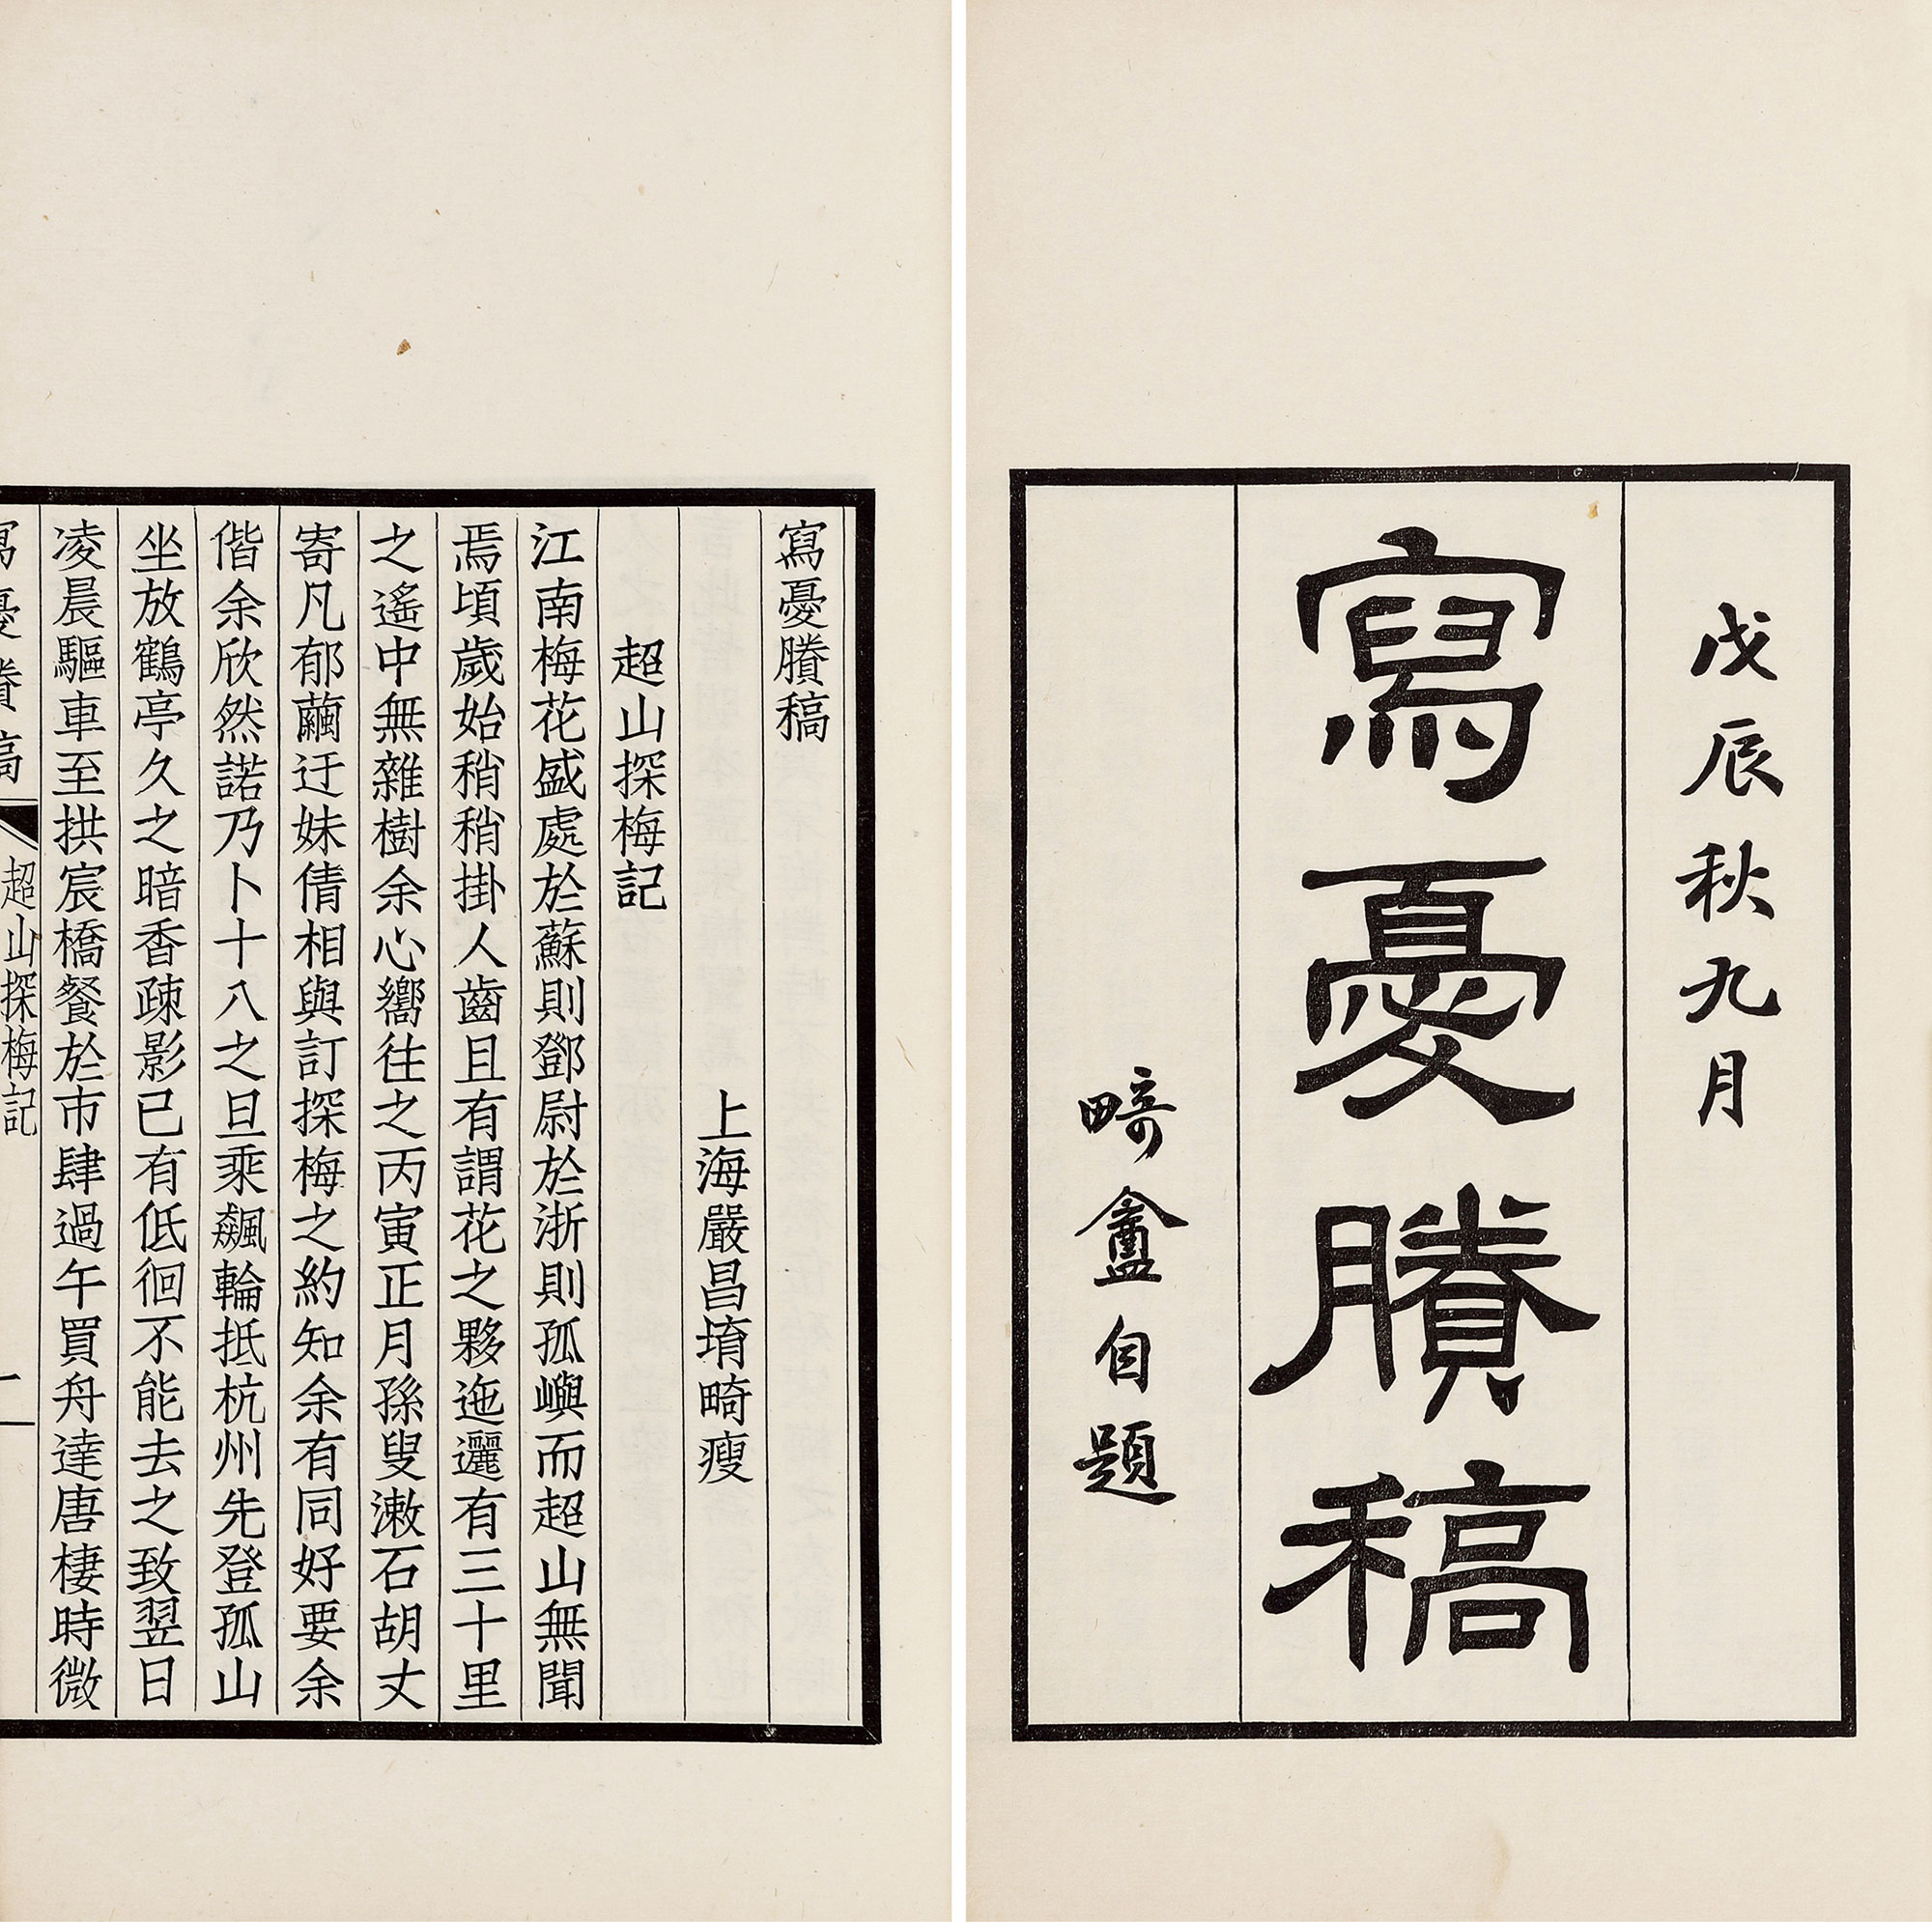 戊辰秋九月
寫憂賸稿
畸盦自題
寫憂賸稿
上海嚴昌堉畸瘦
超山探梅記
江南梅花盛處於蘇則鄧尉於浙則孤嶼而超山無聞
焉頃歲始稍稍掛人齒且有謂花之夥迤邐有三十里
之遙中無雜樹余心嚮往之丙寅正月孫叟漱石胡丈
寄凡郁繭迂妹倩相與訂探梅之約知余有同好要余
偕余欣然諾乃卜十八之旦乘飆輪抵杭州先登孤山
坐放鶴亭久之暗香疎影已有低徊不能去之致翌日
凌晨驅車至拱宸橋餐於市肆過午買舟達唐棲時微
寫憂賸稿
超山探梅記
一